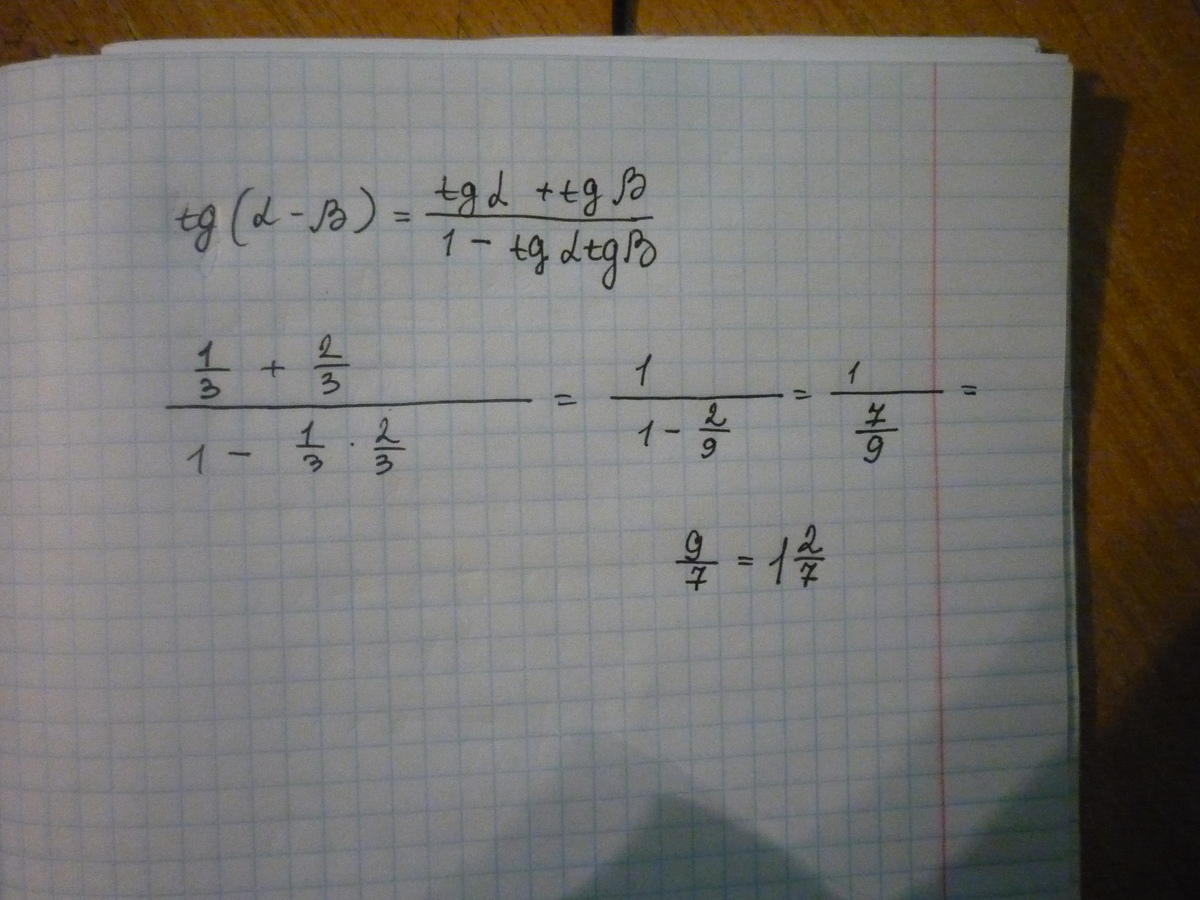 tg(α - β) = (tg α + tg β) / (1 - tg α tg β)
(1/3 + 2/3) / (1 - 1/3 · 2/3) = 1 / (1 - 2/9) = 1 / (7/9) =
9/7 = 1 2/7